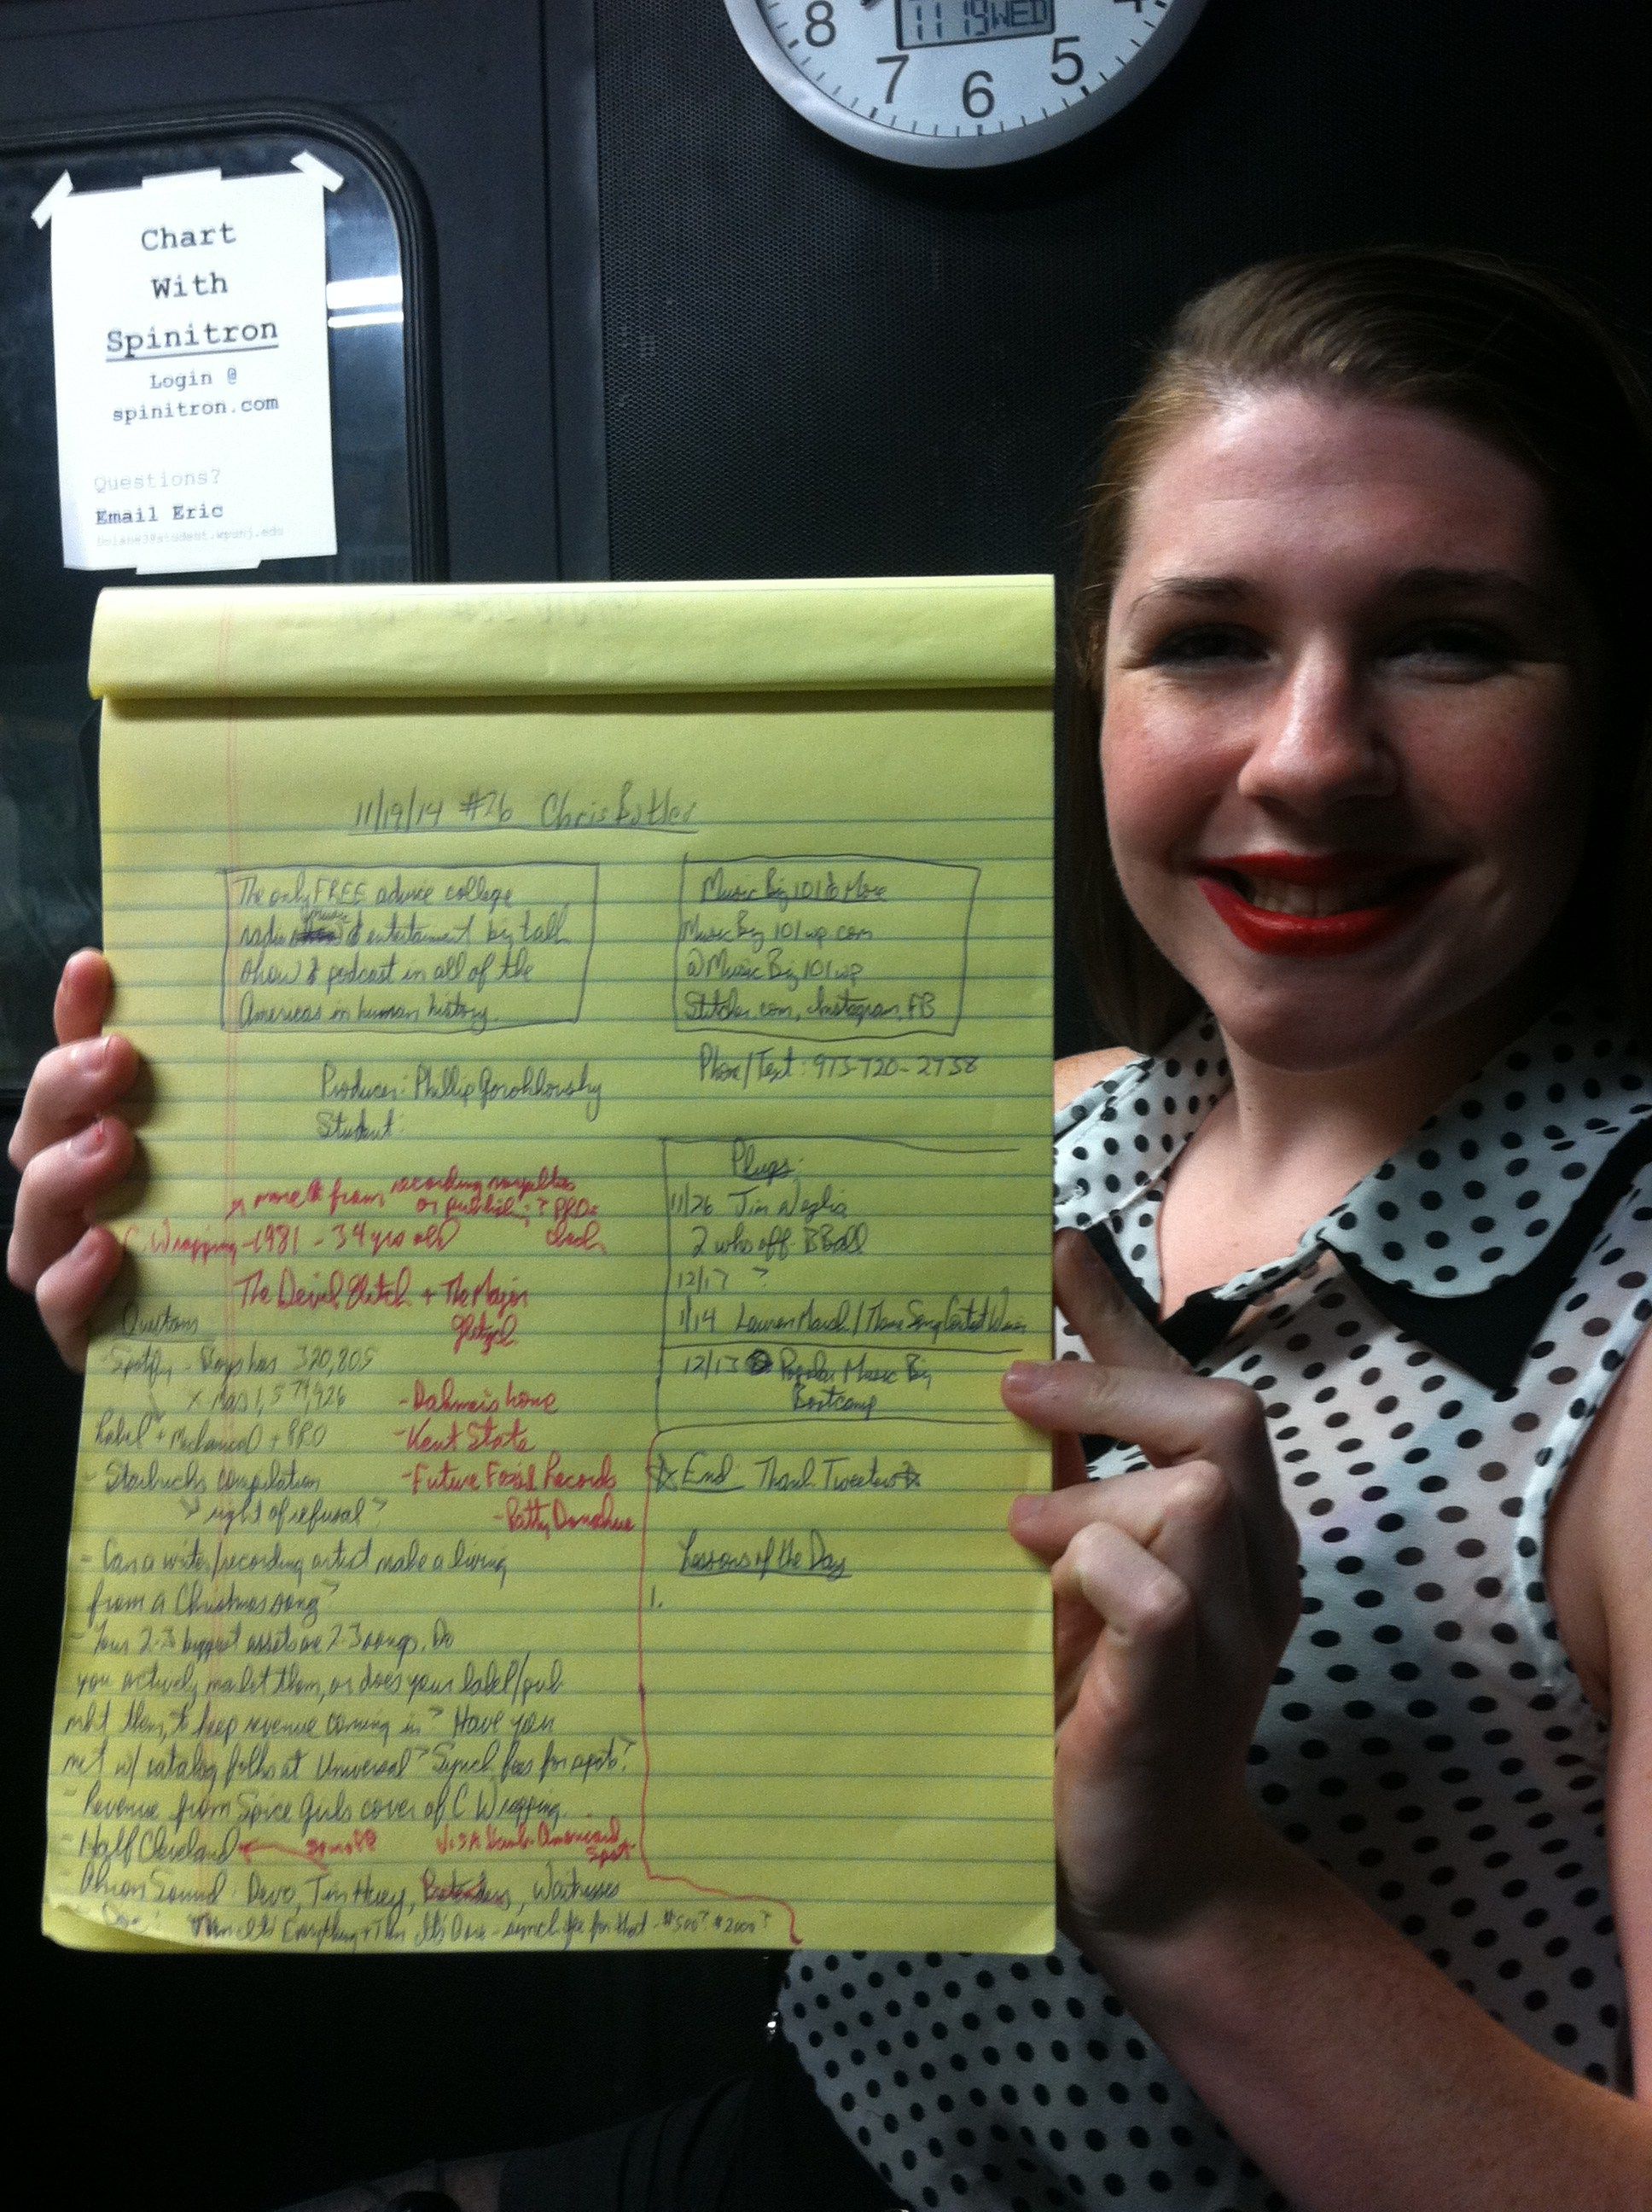 8
7
6
5
4
11 19 WED
Chart
With
Spinitron
Login @
spinitron.com
Questions?
Email Eric
11/19/14 #76 Chris Butler
The only FREE advice college
radio music & entertainment biz talk
show & podcast in all of the
Americas in human history.
Music Biz 101 & More
MusicBiz101wp.com
@MusicBiz101wp
Stitcher.com, Instagram, FB
Phone/Text: 973-720-2738
Producer: Phillip Gorokhovsky
Student:
more $ from recording royalties
or publishing? PROs
check
C. Wrapping - 1981 - 34 yrs old
The Devil Glitch + The Major
Glitch
Plugs:
11/26 Jim
2 wks off BBall
12/17 ?
1/14 Lauren March / Theme Song Contest Winner
12/13 Popular Music Biz
Bootcamp
Questions
- Spotify - Boys has 320,805
X Mas 1,579,926
Label + Mechanical + PRO
- Starbucks compilation
right of refusal?
- Dahmer's home
- Kent State
- Future Fossil Records
- Patty Donahue
End: Thank Tweeters
Lessons of the Day
1.
- Can a writer/recording artist make a living
from a Christmas song?
- Your 2-3 biggest assets are 2-3 songs. Do
you actively market them, or does your label/pub
mkt them, to keep revenue coming in? Have you
met w/ catalog folks at Universal? Synch fees for spots?
- Revenue from Spice Girls cover of C Wrapping
- Half Cleveland
Spot
- Akron Sound: Devo, Tin Huey, Pretenders, Waitresses
synch fee for that - $500? $2000?